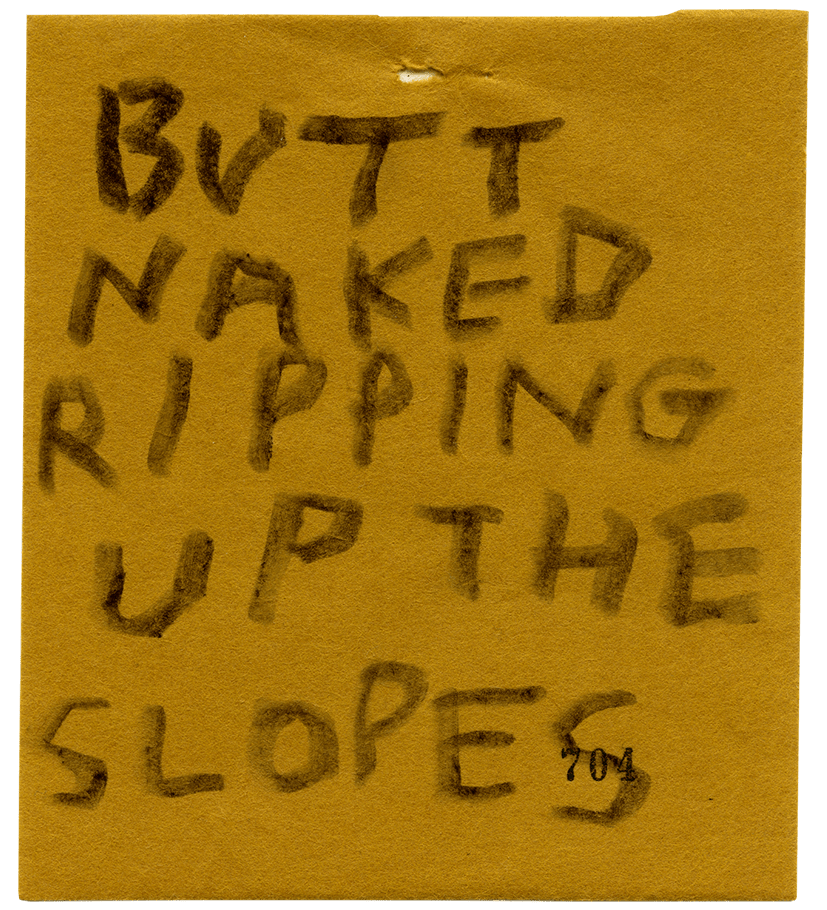 BUTT
NAKED
RIPPING
UP THE
SLOPES
704